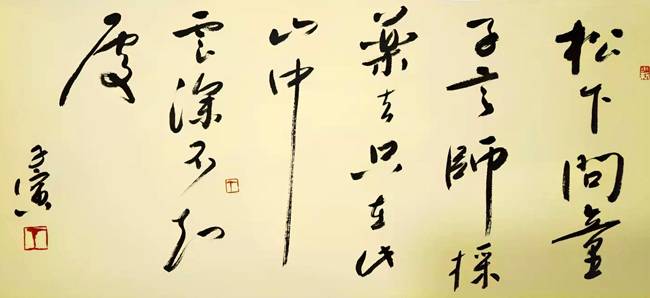 松下问童
子言師採
藥去只在此
山中
雲深不知
處
子寅